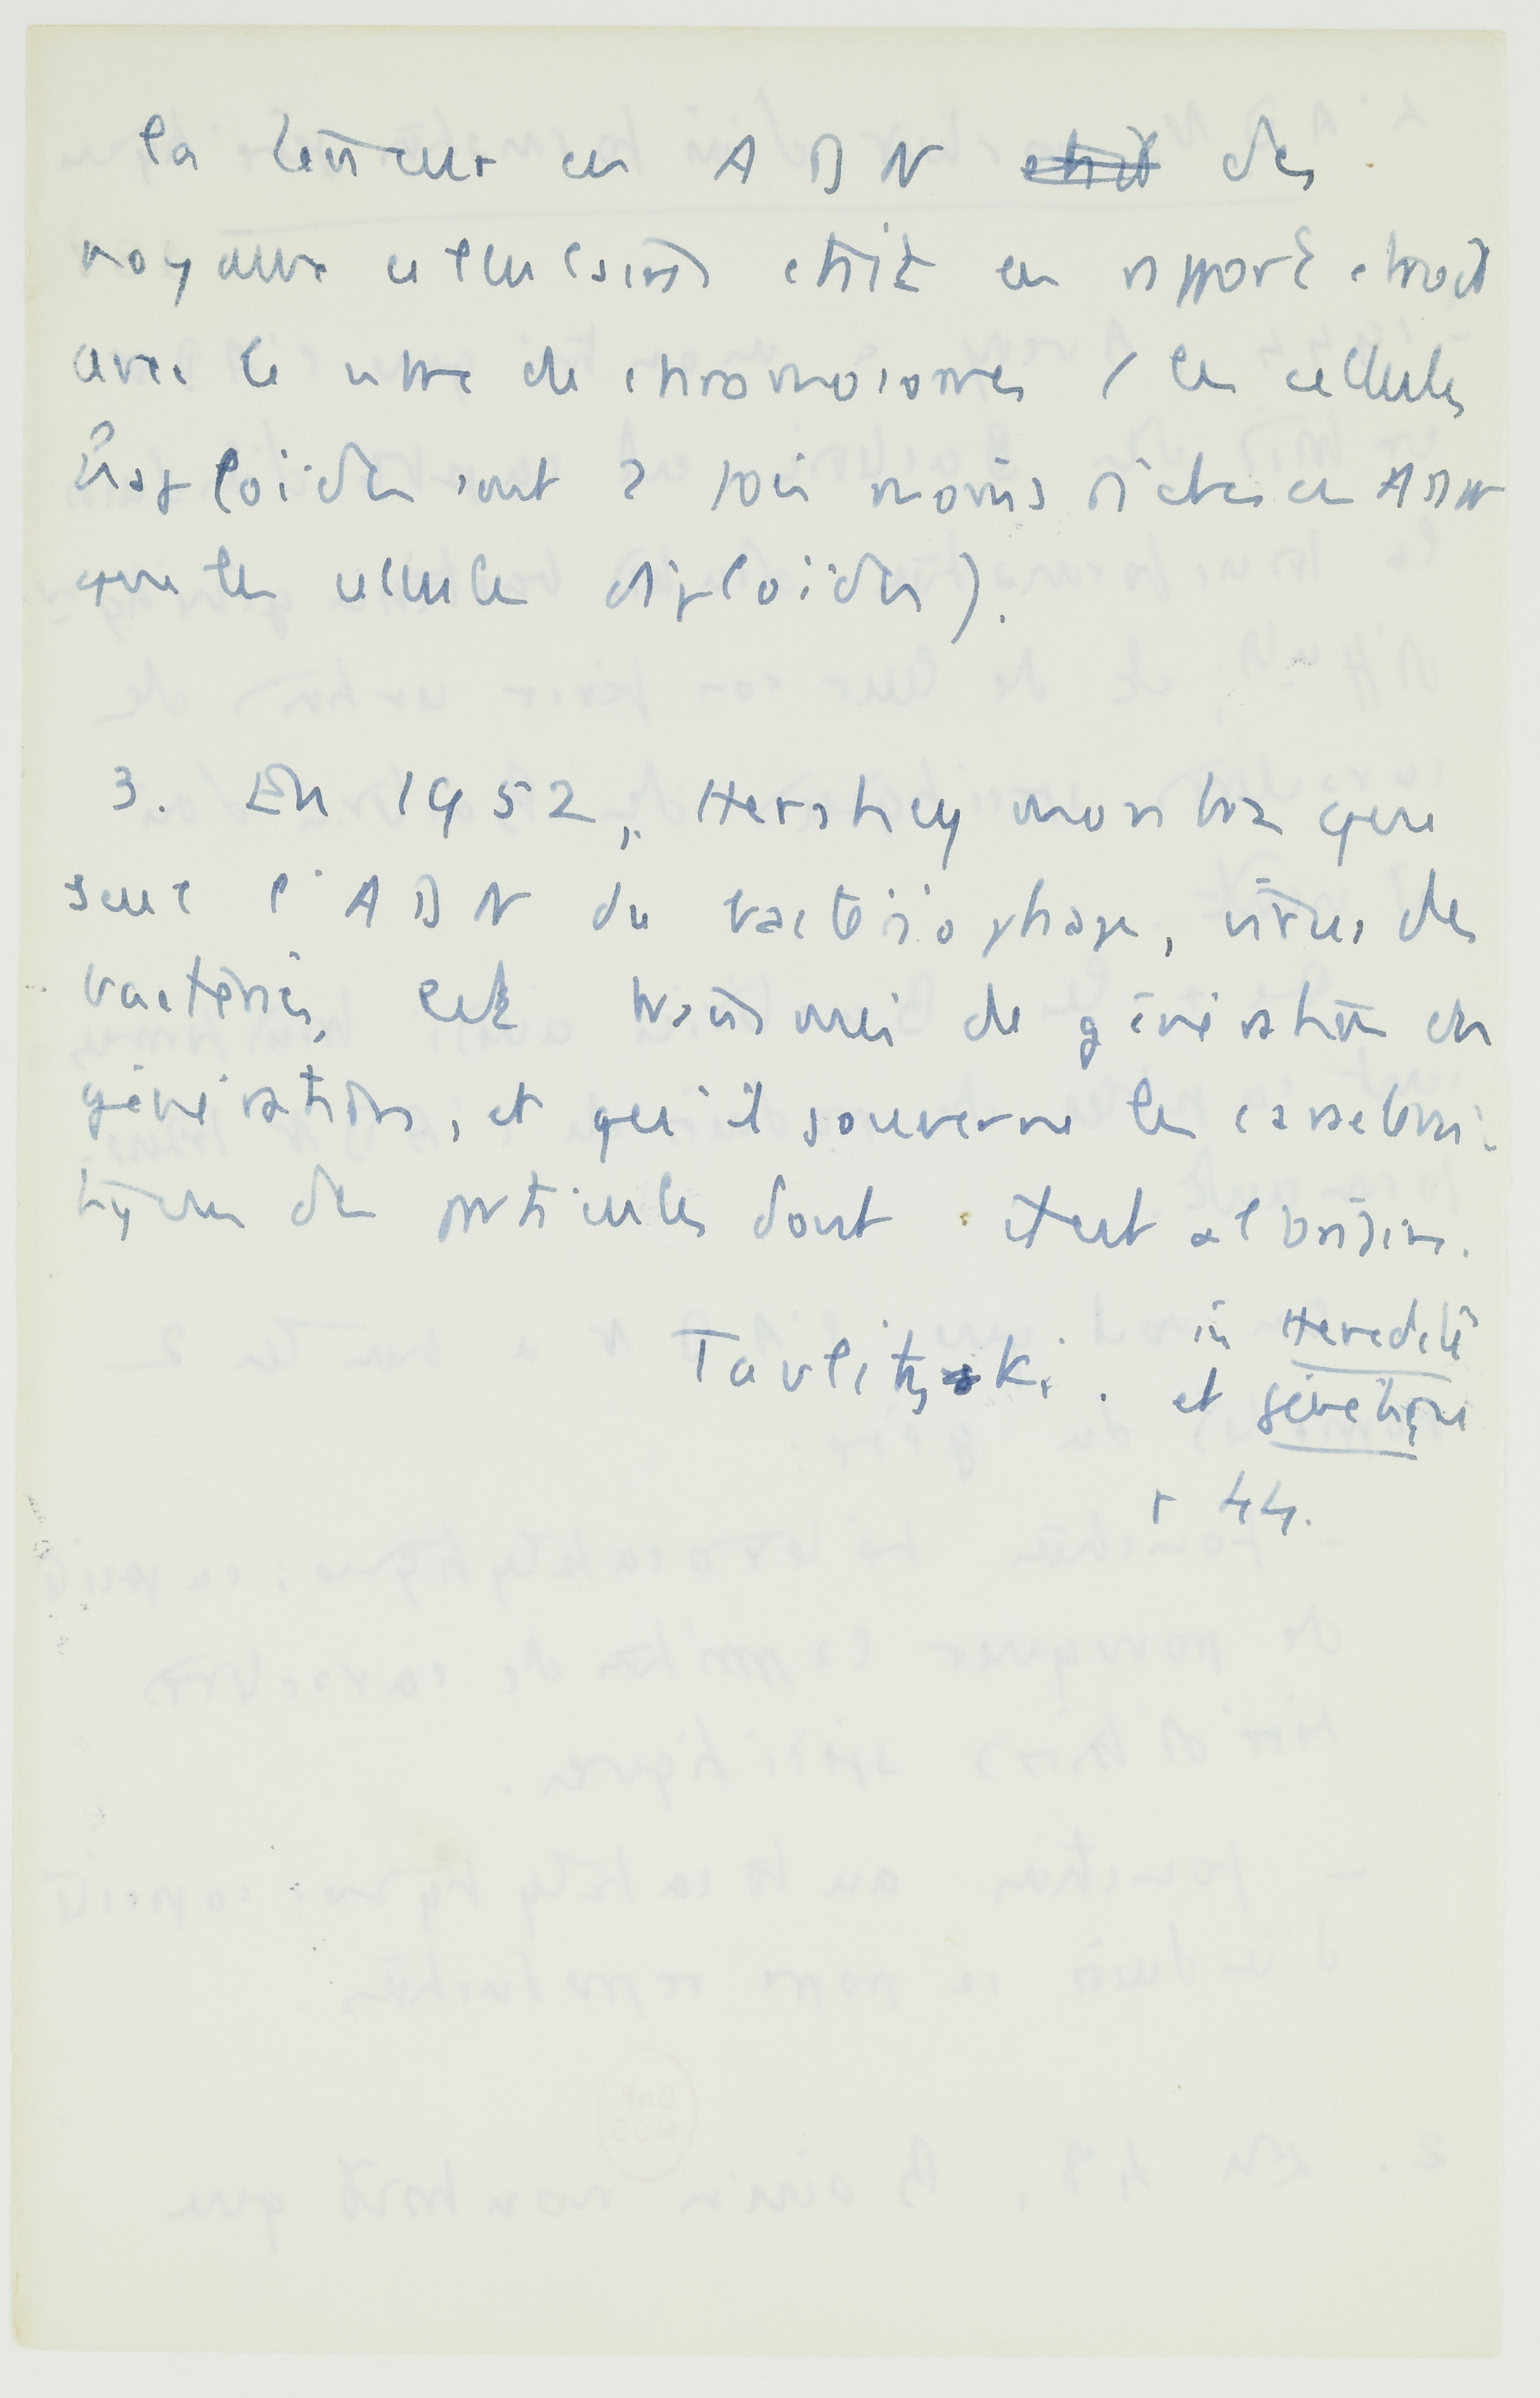 la teneur en ADN était des
noyaux cellulaires était en rapport étroit
avec le nbre de chromosomes (les cellules
haploïdes sont 2 fois moins riches en ADN
que les cellules diploïdes).
3. En 1952, Hershey montra que
seul l'ADN du bactériophage, virus des
bactéries, est transmis de génération en
génération, et qu'il gouverne les caractéris-
tiques des particules dont il est à l'origine.
Tavlitzki. in Heredité
et génétique
p 44.